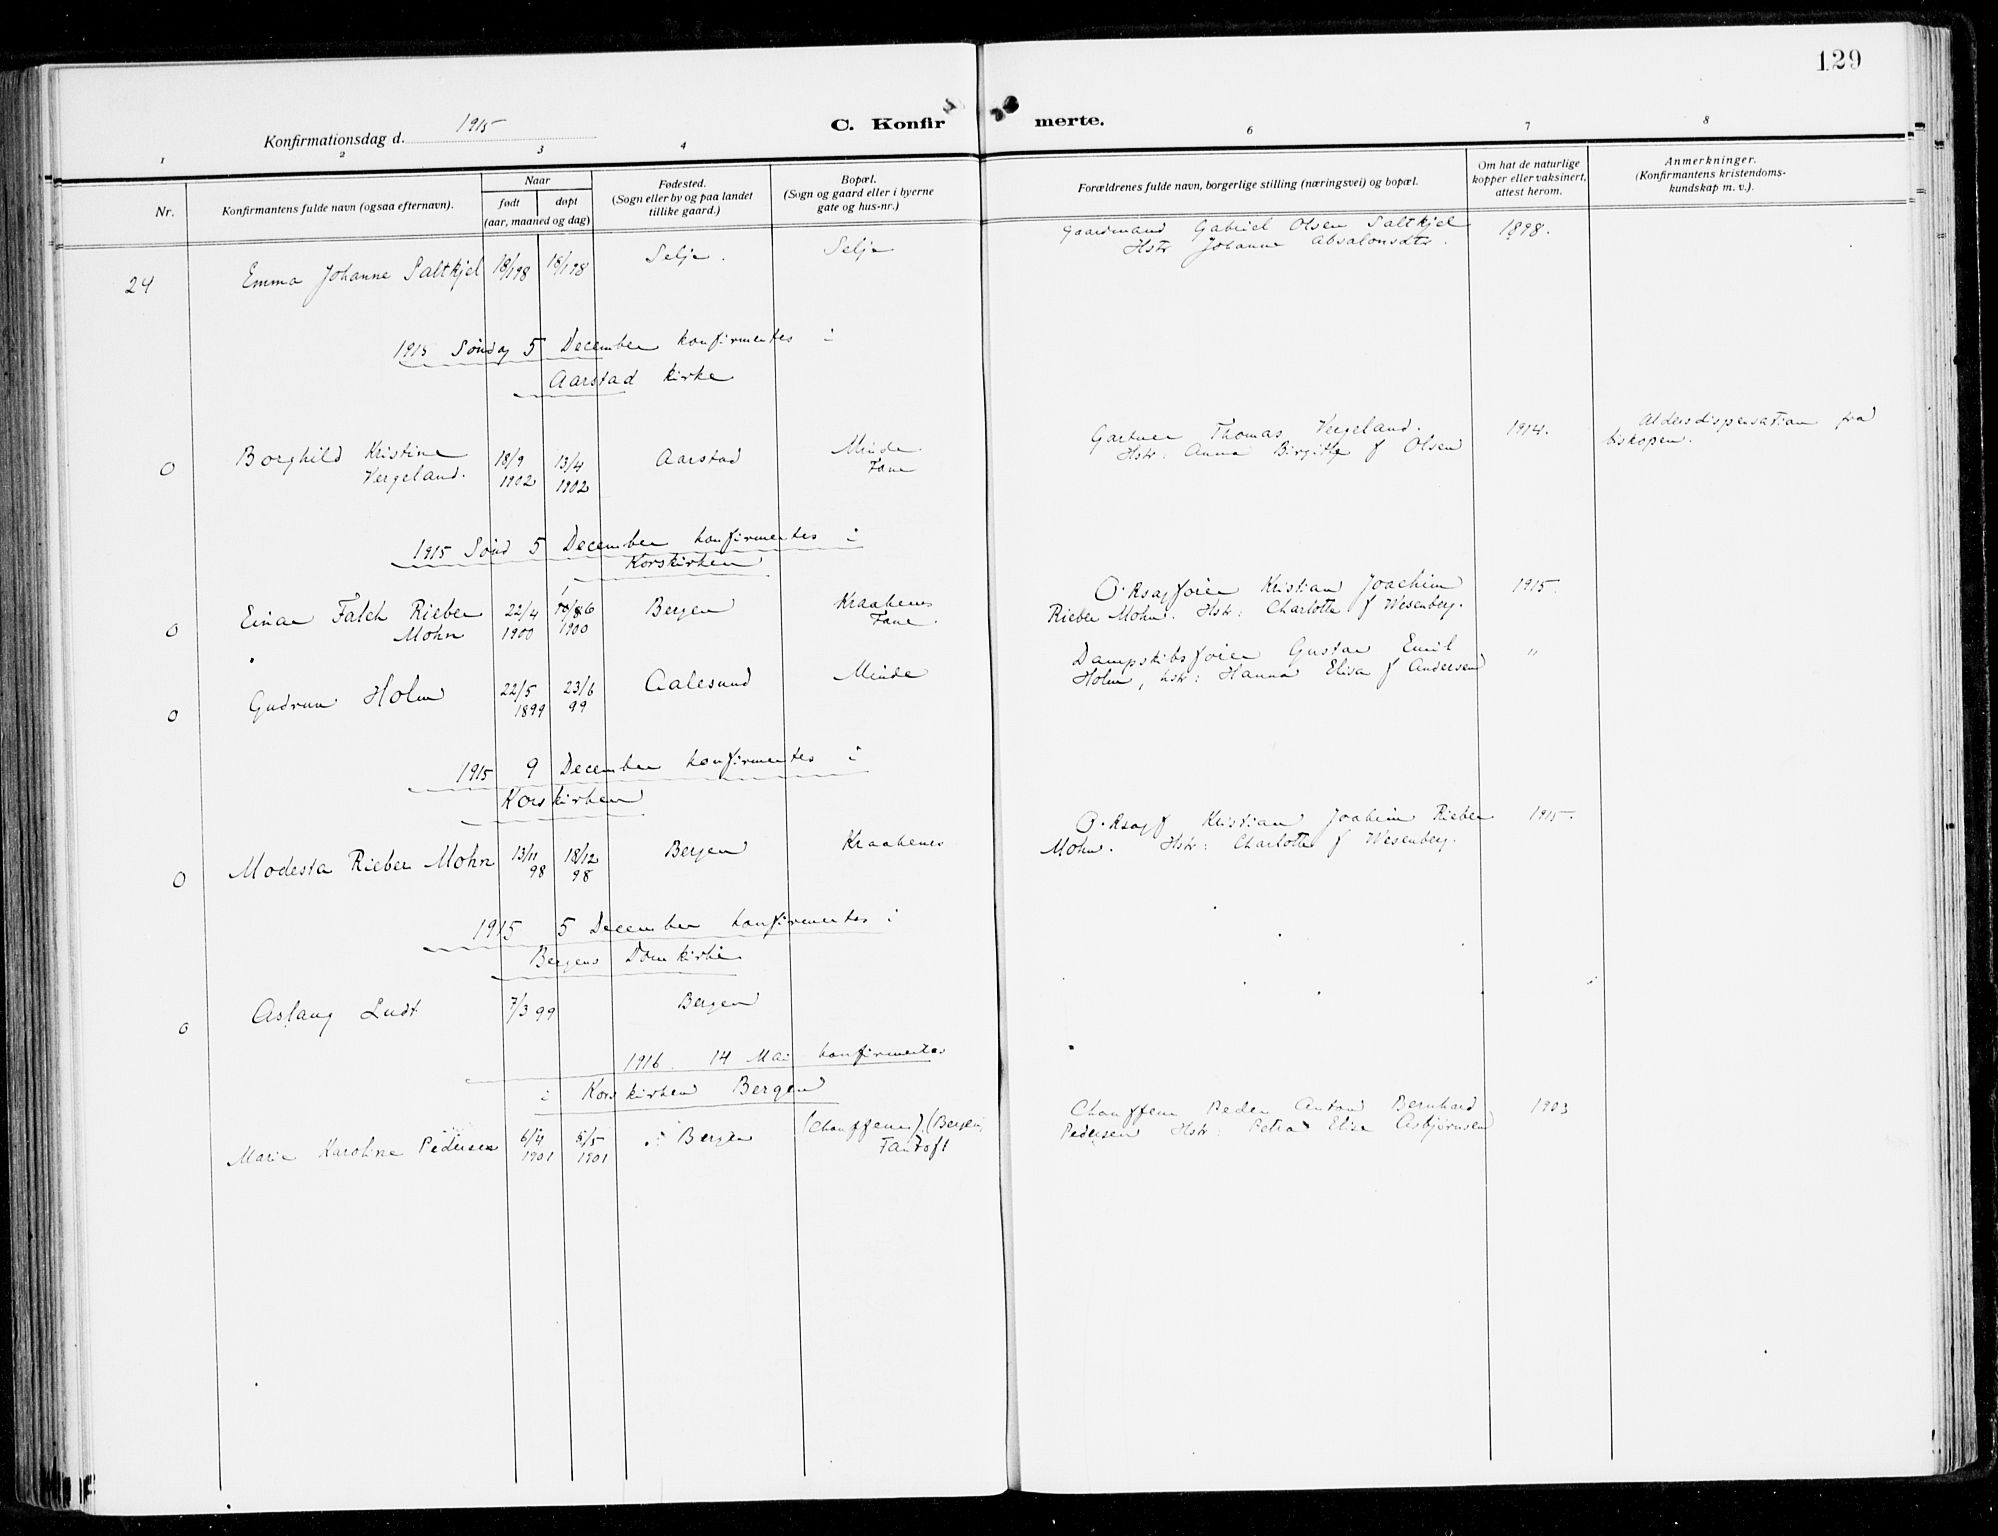 129
Konfirmationsdag d. 1915
C. Konfirmerte.
1 2 3 4 6 7 8
Nr.
Konfirmantens fulde navn (ogsaa efternavn).
Naar
født døpt
(aar, maaned og dag)
Fødested.
(Sogn eller by og paa landet
tillike gaard.)
Bopæl.
(Sogn og gaard eller i byerne
gate og hus-nr.)
Forældrenes fulde navn, borgerlige stilling (næringsvei) og bopæl.
Om hat de naturlige
kopper eller vaksinert,
attest herom.
Anmerkninger.
(Konfirmantens kristendoms-
kundskap m. v.).
24 Emma Johanne Saltkjel Selje. Selje
Gaardmand Gabriel Olsen Saltkjel 1898.
Hstr Johanne Absalonsdtr.
1915 Søndag 5 December konfirmertes i
Aarstad Kirke
0 Borghild Kristine 18/9 13/4 Aarstad Minde
Vergeland. 1902 1902 Fane
Gartner Thomas Vergeland. 1914. Aldersdispensation fra
Hstr: Anna Birgitte f Olsen biskopen.
1915 Sønd 5 December konfirmertes i
Korskirken
0 Einar Falch Rieber 22/4 Bergen Kraakenes
Mohn 1900 1900 Fane.
O.Rsagfører Kristian Joachim 1915.
Rieber Mohn. Hstr: Charlotte f Wesenberg.
0 Gudrun Holm 22/5 23/6 Aalesund Minde
1899 99
Dampskibsfører Gustav Emil "
Holm, hstr: Hanna Elisa f Andersen
1915 9 December konfirmertes i
Korskirken
0 Modesta Rieber Mohn 13/11 18/12 Bergen Kraakenes
98 98
O.Rsagf Kristian Joahim Rieber 1915.
Mohn. Hstr: Charlotte f Wesenberg.
1915 5 December konfirmertes i
Bergens Domkirke
0 Aslaug Ludt 7/3 99 Bergen
1916. 14 Mai konfirmertes
i Korskirken Bergen
Marie Karoline Pedersen 6/4 5/5 Bergen (Chauffeur) (Bergen,
1901 1901 Fantoft
Chauffeur Peder Anton Bernhard 1903
Pedersen Hstr: Petra Elise Asbjørnsen